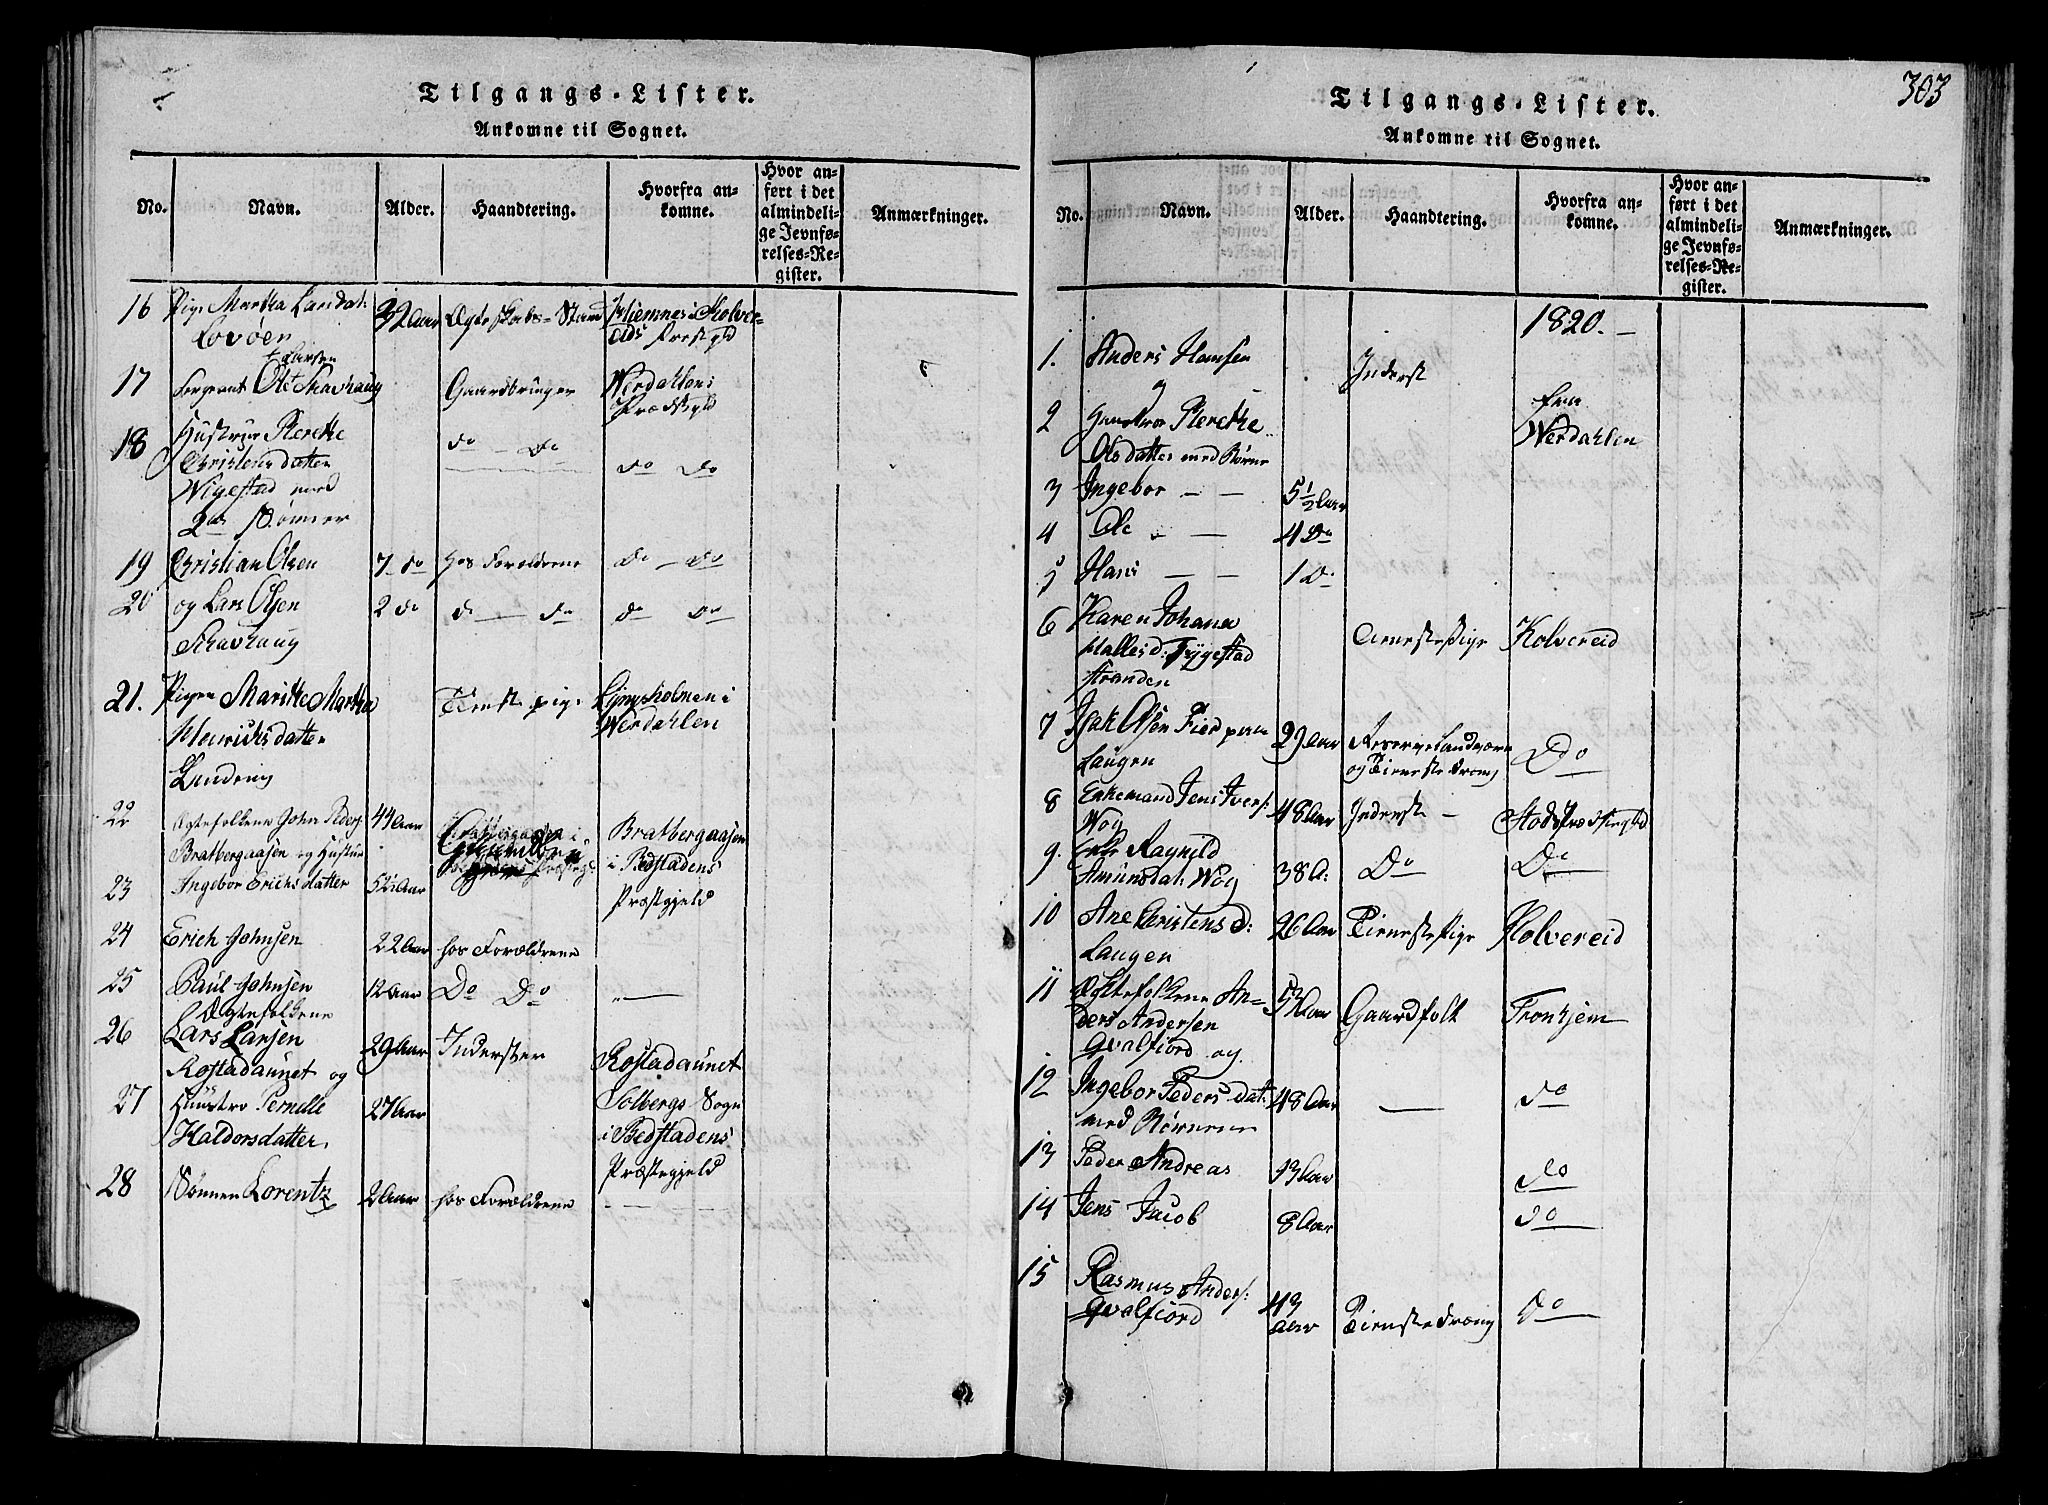 Tilgangs-Lister.
Ankomne til Sognet.
No. Navn. Alder. Haandtering. Hvorfra an-
komne. Hvor an-
ført i det
almindeli-
ge Jevnfø-
relses-Re-
gister. Anmærkninger.
16 Pige Martha Landat:
Lovöen 32 Aar Ægteskabs-Stand i Kolver-
eids Præstgld
17 Sergeant Ole Larsen Skavhaug Gaardbruger Werdahlens
Prædstgld
18 Hustrue Merethe
Christensdatter
Wigestad med
2de Sønner do - do do do
19 Christian Olsen 7 do hos Forældrene do - do
20 og Lars Olsen
Skavhaug 2 do do - do do do
21. Pigen Marithe Martha
Henrichsdatter
Tieneste pige Lyngsholmen i
Werdahlen
22 Ægtefolkene John Peders:
Bratbergaasen og Hustru 44 Aar Bratbergaasen
i Bedstadens
Præstgjeld
23 Ingebor Erichsdatter 52 Aar
24 Erich Johnsen 22 Aar hos Forældrene
25 Paul Johnsen 12 Aar Do Do " —
26 Ægtefolkene
Lars Larsen
Rostadaunet og 29 Aar Inderster Rostadaunet
27 Huustro Pernelle
Haldorsdatter, 27 Aar Solbergs Sogn
i Bedstadens
Præstegjeld
28 Sønnen Lorentz 2 Aar hos Forældrene - - -
303
Tilgangs-Lister.
Ankomne til Sognet.
No. Navn. Alder. Haandtering. Hvorfra an-
komne. Hvor an-
ført i det
almindeli-
ge Jevnfø-
relses-Re-
gister. Anmærkninger.
1820. -
1. Anders Hansen
og Inderst
2 Huustroe Merethe
Olsdatter med Børne fra
Werdahlen
3 Ingebor - - 5½ Aar
4 Ole - - 4 Do
5 Hans - - 1 Do
6 Karen Johana
Hallesd:
stranden Tieneste Pige Kolvereid
7 Isak Olsen
Laugen 29 Aar Reserve Landværn
og Tienestedreng Do
8 Enkemand Jens Ivers:
Wog 48 Aar Inderste - Stods Prædstegld
9. Enke Ragnild
Amundsdat: Wog 38 A: Do Do
10 Ane Christensd:
Laugen 26 Aar Tienestepige Kolvereid
11 Ægtefolkene An-
ders Andersen
Qvalfiord og 52 Aar Gaardfolk Tronhjem
12 Ingebor Pedersdat:
med Børnene 48 Aar — do
13 Peder Andreas 13 Aar do
14 Jens Jacob 8 Aar do
15 Rasmus Anders:
Qvalfiord 43
Aar Tienestedreng Do